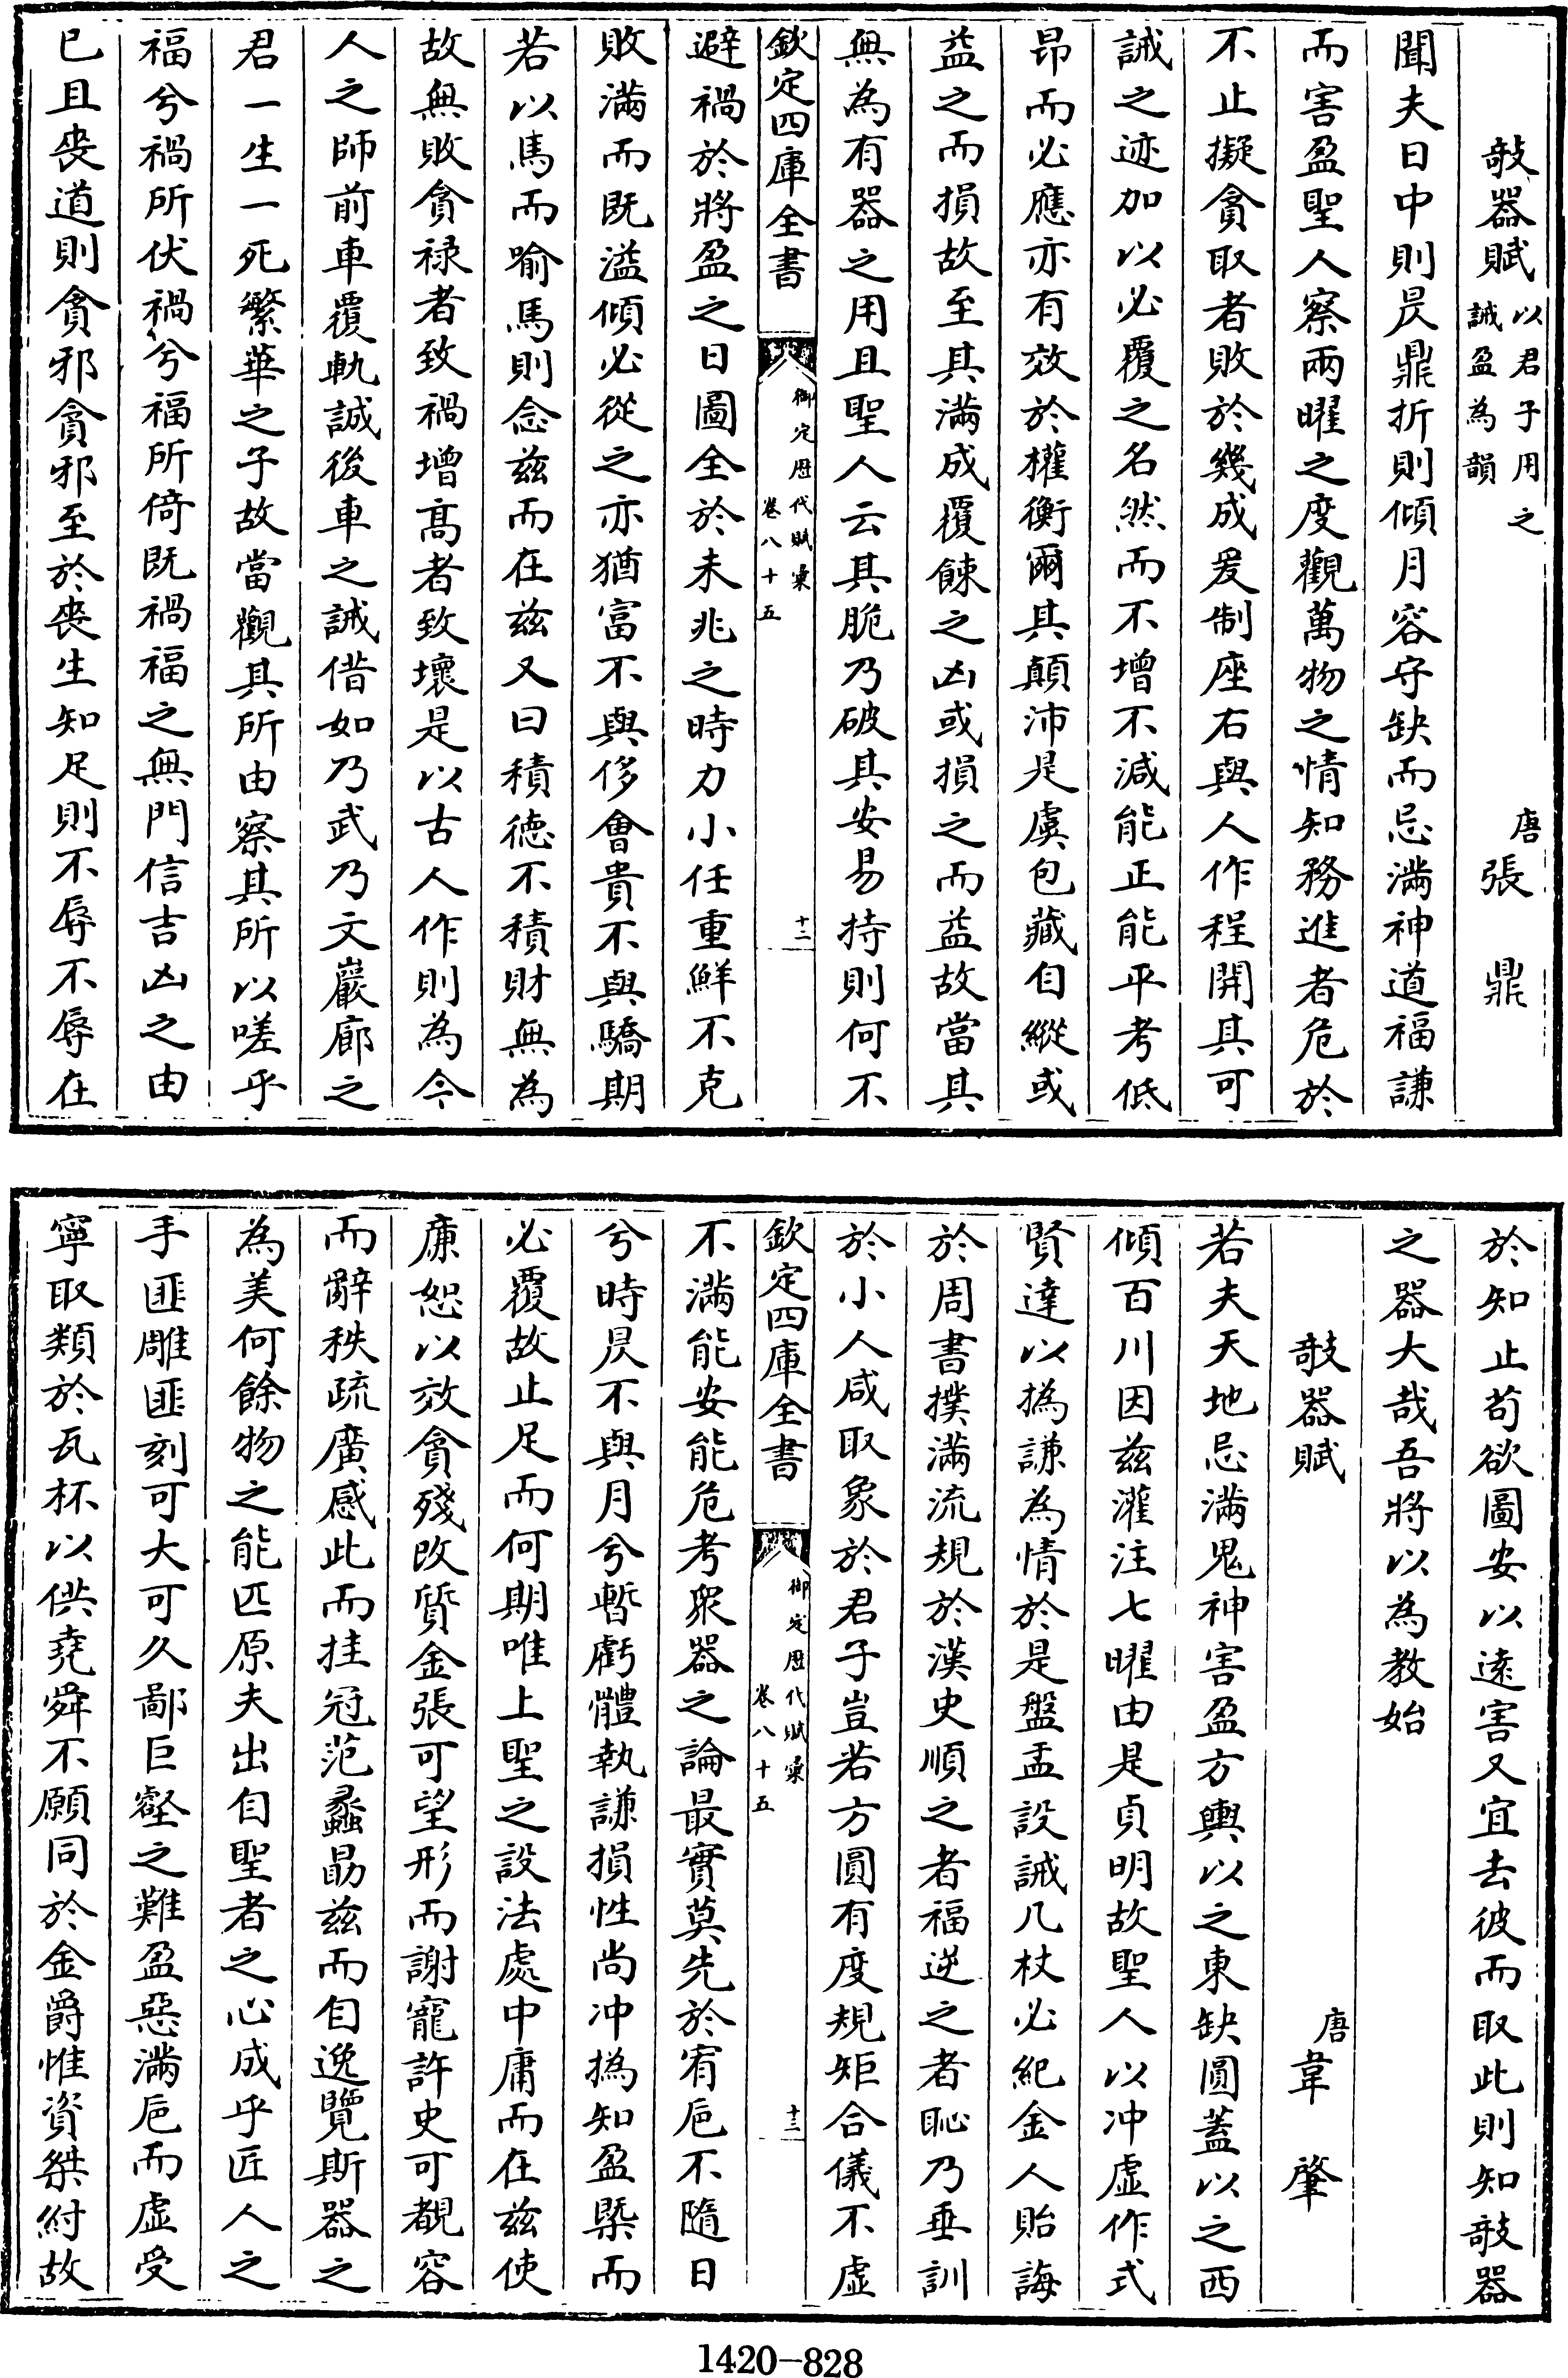 敧器賦以君子用之誡盈為韻　唐張鼎
聞夫日中則昃鼎折則傾月容守缺而忌滿神道福謙
而害盈聖人察兩曜之度觀萬物之情知務進者危於
不止擬貪取者敗於幾成爰制座右與人作程開其可
誡之迹加以必覆之名然而不增不減能正能平考低
昂而必應亦有效於權衡爾其顛沛是虞包藏自縱或
益之而損故至其滿成覆餗之凶或損之而益故當其
無為有器之用且聖人云其脆乃破其安易持則何不
欽定四庫全書　御定歷代賦彙　卷八十五　十二
避禍於將盈之日圖全於未兆之時力小任重鮮不克
敗滿而既溢傾必從之亦猶富不與侈會貴不與驕期
若以馬而喻馬則念茲而在茲又曰積德不積財無為
故無敗貪祿者致禍增高者致壞是以古人作則為今
人之師前車覆軌誠後車之誡借如乃武乃文巖廊之
君一生一死繁華之子故當觀其所由察其所以嗟乎
福兮禍所伏禍兮福所倚既禍福之無門信吉凶之由
已且喪道則貪邪貪邪至於喪生知足則不辱不辱在
於知止苟欲圖安以遠害又宜去彼而取此則知敧器
之器大哉吾將以為教始
敧器賦　唐韋肇
若夫天地忌滿鬼神害盈方輿以之東缺圓蓋以之西
傾百川因茲灌注七曜由是貞明故聖人以冲虛作式
賢達以撝謙為情於是盤盂設誡几杖必紀金人貽誨
於周書撲滿流規於漢史順之者福逆之者恥乃垂訓
於小人咸取象於君子豈若方圓有度規矩合儀不虛
欽定四庫全書　御定歷代賦彙　卷八十五　十三
不滿能安能危考衆器之論最實莫先於宥巵不隨日
兮時昃不與月兮暫虧體執謙損性尚冲撝知盈槩而
必覆故止足而何期唯上聖之設法處中庸而在茲使
廉恕以效貪殘改質金張可望形而謝寵許史可覩容
而辭秩疏廣感此而挂冠范蠡勗茲而自逸覽斯器之
為美何餘物之能匹原夫出自聖者之心成乎匠人之
手匪雕匪刻可大可久鄙巨壑之難盈惡滿巵而虛受
寧取類於瓦杯以供堯舜不願同於金爵惟資桀紂故
1420-828